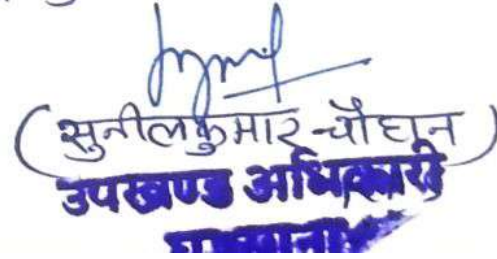 (सुनील कुमार चौहान)
उपखण्ड अधिकारी